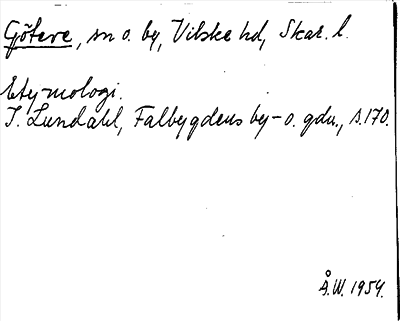 Göteve, sn o. by, Vilske hd, Skar. l.
Etymologi.
I. Lundahl, Falbygdens by- o. gdn., s.170.
Å.W. 1954.